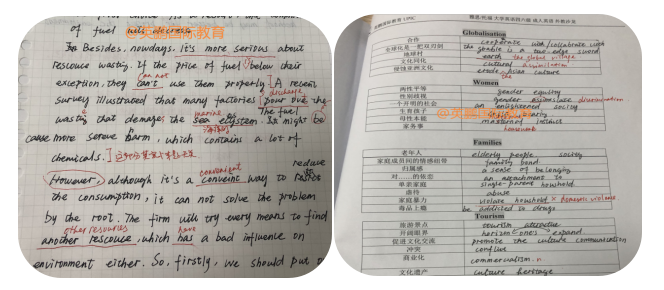 of fuel will decrease
Besides, nowdays. it's more serious about
rescouce wasting. If the price of fuel below their
can not
exception. they can't use them properly [A recent
discharge
survey illustrated that many factories pour out the
wasting that damages the sea ecsystem. The fuel might be
marine
cause more serove harm, which contains a lot of
chemicals.]
convenient
However, although it's a conveint way to reduce
the consumption, it can not solve the problem
by the root. The firm will try every means to find
other resources
another rescouce, which has a bad influence on
environment either. So, firstly, we should put
@英盛国际教育
雅思/托福
Globalisation
合作 cooperate with/collaborate with
全球化是一把双刃剑 the gobable is a two-edge sword
地球村 earth the global village
文化同化 cultural assimilation
侵蚀亚洲文化 erode Asian culture
Women
两性平等 gender equity
性别歧视 gender discrimination
一个开明的社会 an enlightened society
生育孩子
母性本能 instinct
家务事 housework
@英盛国际教育
Families
老年人 elderly people society
家庭成员间的情感纽带 family bond
归属感 a sense of belonging
对……的依恋 an attachment to
单亲家庭 single-parent houshold
虐待 abuse
家庭暴力 violace houshold × domestic violence
毒品上瘾 be addicted to drugs
Tourism
旅游景点 tourism attractive
开阔眼界 horizon one's expand
促进文化交流 promote the culture communication
冲突 conflive
商业化 commercualism
文化遗产 culture heritage